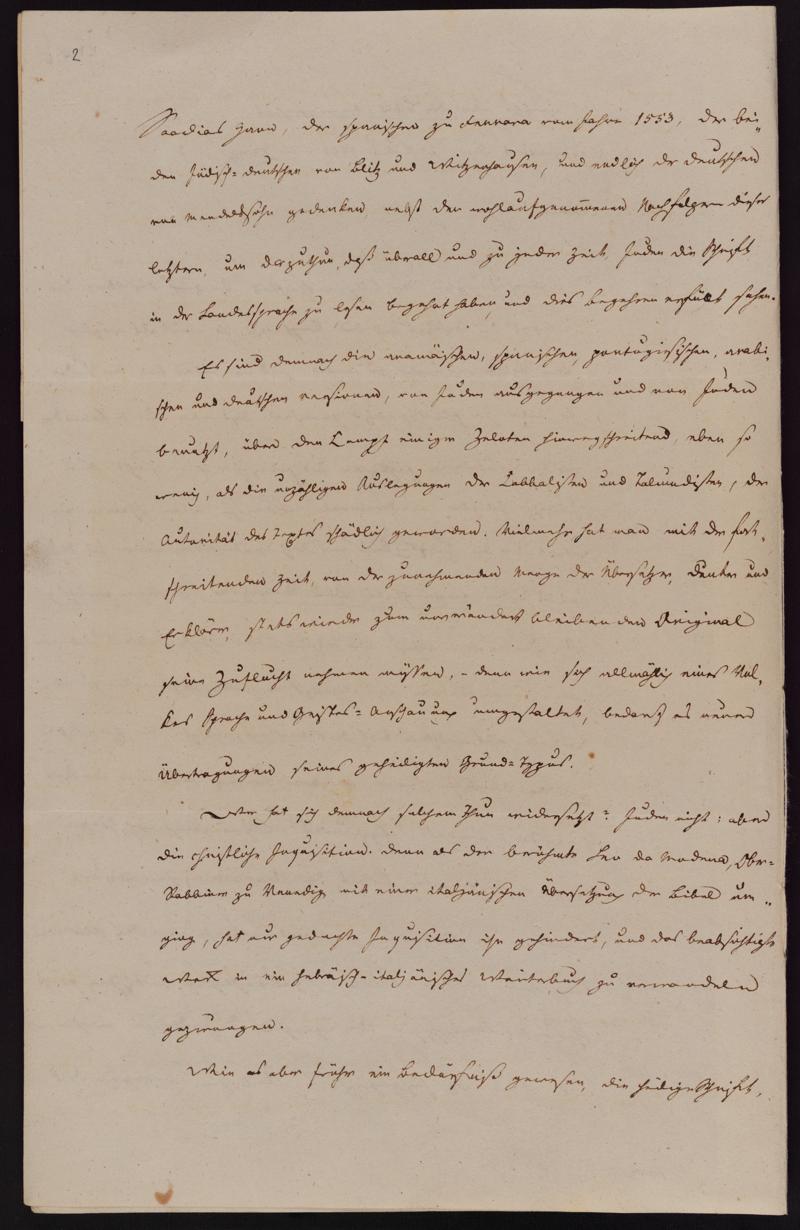 2
Saadias Gaon, der spanischen zu Ferrara vom Jahre 1553, der bei„
den Jüdisch-deutschen von Blitz und Witzenhausen, und endlich der deutschen
von Mendelssohn gedenken, nebst den wohlaufgenom̅enen Nachfolgern dieser
letztern, um darzuthun, daß überall und zu jeder Zeit, Juden die Schrift
in der Landessprache zu lesen begehrt haben, und dies Begehren erfüllt sahen.
Es sind demnach die aramäischen, spanischen, portugisischen, arabi„
schen und deutschen Versionen, von Juden ausgegangen und von Juden
benutzt, über den Kampf einiger Zeloten hinwegschreitend, eben so
wenig, als die unzähligen Auslegungen der Cabbalisten und Talmudisten, der
Autorität des Textes schädlich geworden. Vielmehr hat man mit der fort„
schreitenden Zeit, von der zunehmenden Menge der Übersetzer, Denker und
Erklärer, stets wieder zum unverändert bleibenden Original
seine Zuflucht nehmen müssen, – denn wie sich allmählig eines Vol„
kes Sprache und Geistes-Anschauung umgestaltet, bedarf es neuer
Übertragungen seines geheiligten Grund-Typus.
Wer hat sich demnach solchem Thun widersetzt? Juden nicht; aber
die christliche Inquisition. Denn als der berühmte Leo da Modena, Ober-
Rabbiner zu Venedig mit einer italiänischen Übersetzung der Bibel um„
ging, hat nur gedachte Inquisition ihn gehindert, und das beabsichtigte
Werk in ein hebräisch-italiänisches Wörterbuch zu verwandeln
gezwungen.
Wie es aber früher ein Bedürfniß gewesen, die heilige Schrift,